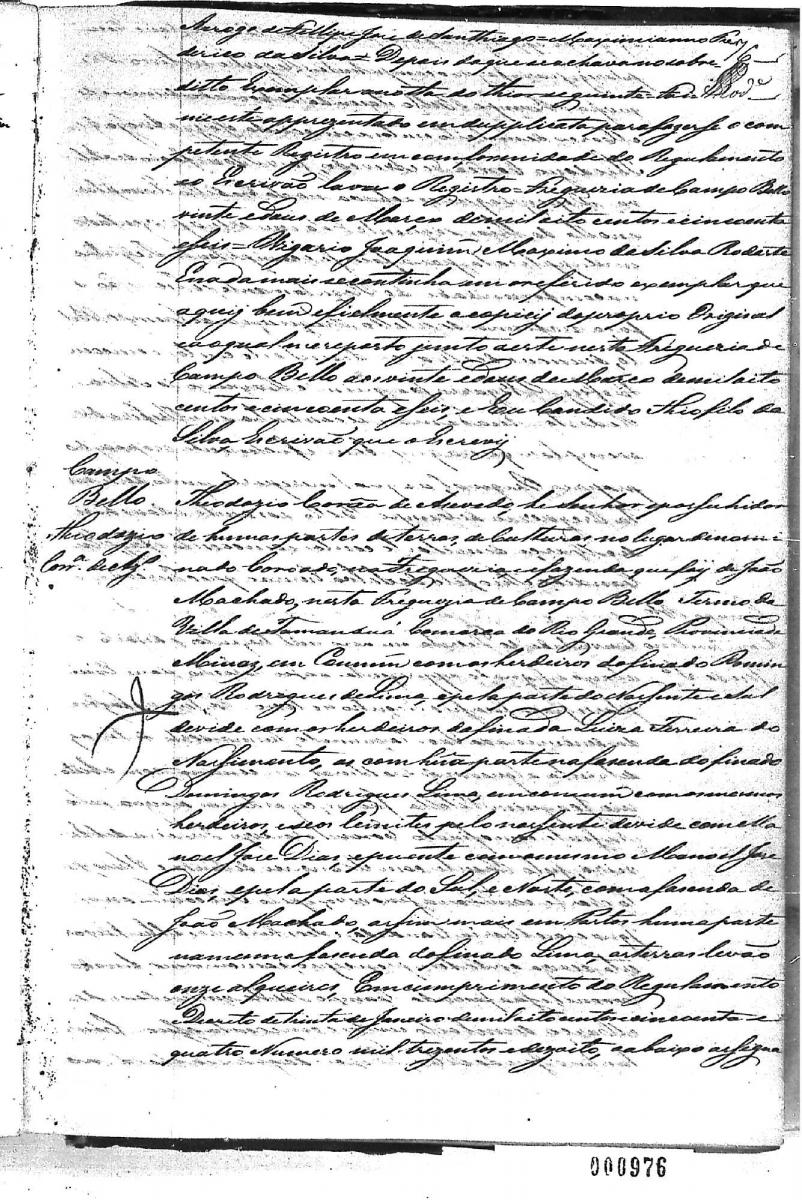 Arrogo de Fellipe José de Santhiago = Maximianno Fre
derico da Silva = Depois do que se achava no sobre
ditto Exemplar a notta do thior seguinte =
me este apprezentado em dupplicata para fazerse o com
petente Registro em comformidade do Regulamento
eo Escrivão lavre o Registro = Freguezia de Campo Bello
vinte e dous de Março de mil oito centos e cincoenta
e seis = Vigario Joaquim Maximo da Silva Rodarte
E nada mais se continha em o referido exemplar que
aquy bem e fielmente o copiey do proprio Original
ao qual me reporto junto a este nesta Freguezia de
Campo Bello aos vinte e dous de Março de mil oito
centos e cincoenta e seis, e Eu Candido Thiofilo da
Silva, Escrivão que o Escrevy
Campo
Bello
Theodozio
Corrª. de Azº
Theodozio Corrêa de Azevedo, he Senhor e possuhidor
de humas partes de terras, de Culturas no lugar denomi
nado Coroado, na Freguezia, e fazenda que foy de João
Machado, nesta Freguezia de Campo Bello Termo da
Villa de Tamanduá Comarca do Rio Grande, Provincia de
Minas, em Cumũm com os herdeiros do finado Domin
gos Rodrigues de Lima, e pela parte do Nascente e Sul
devide com os herdeiros da finada Luiza Ferreira do
Nascimento, as com huã parte na fasenda do finado
Domingos Rodrigues Lima, em comum com os mesmos
herdeiros, e seos limites pelo nascente devide com Ma
noel José Dias, e puente com o mesmo Manoel José
Dias, e pela parte do Sul, e Norte, com a fasenda de
João Machado, assim mais em Pastos huma parte
na mesma fasenda do finado Lima, as terras levão
onze alqueires, Em cumprimento do Regulamento
e Decreto de trinta de Janeiro de mil oito centos e cincoenta e
quatro Numero mil trezentos e dezoito, e abaixo assigna
000976